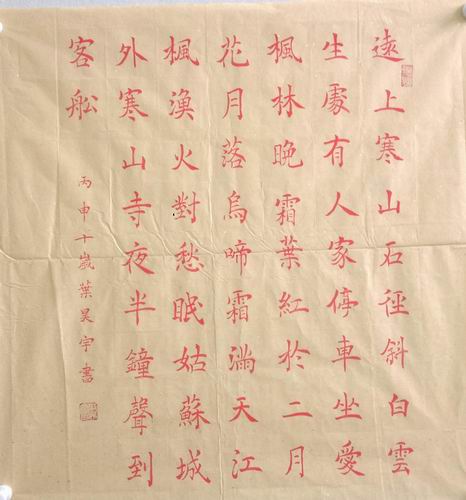 遠上寒山石徑斜白雲
生處有人家停車坐愛
楓林晚霜葉紅於二月
花月落烏啼霜滿天江
楓漁火對愁眠姑蘇城
外寒山寺夜半鐘聲到
客舩
丙申十歲葉昊宇書